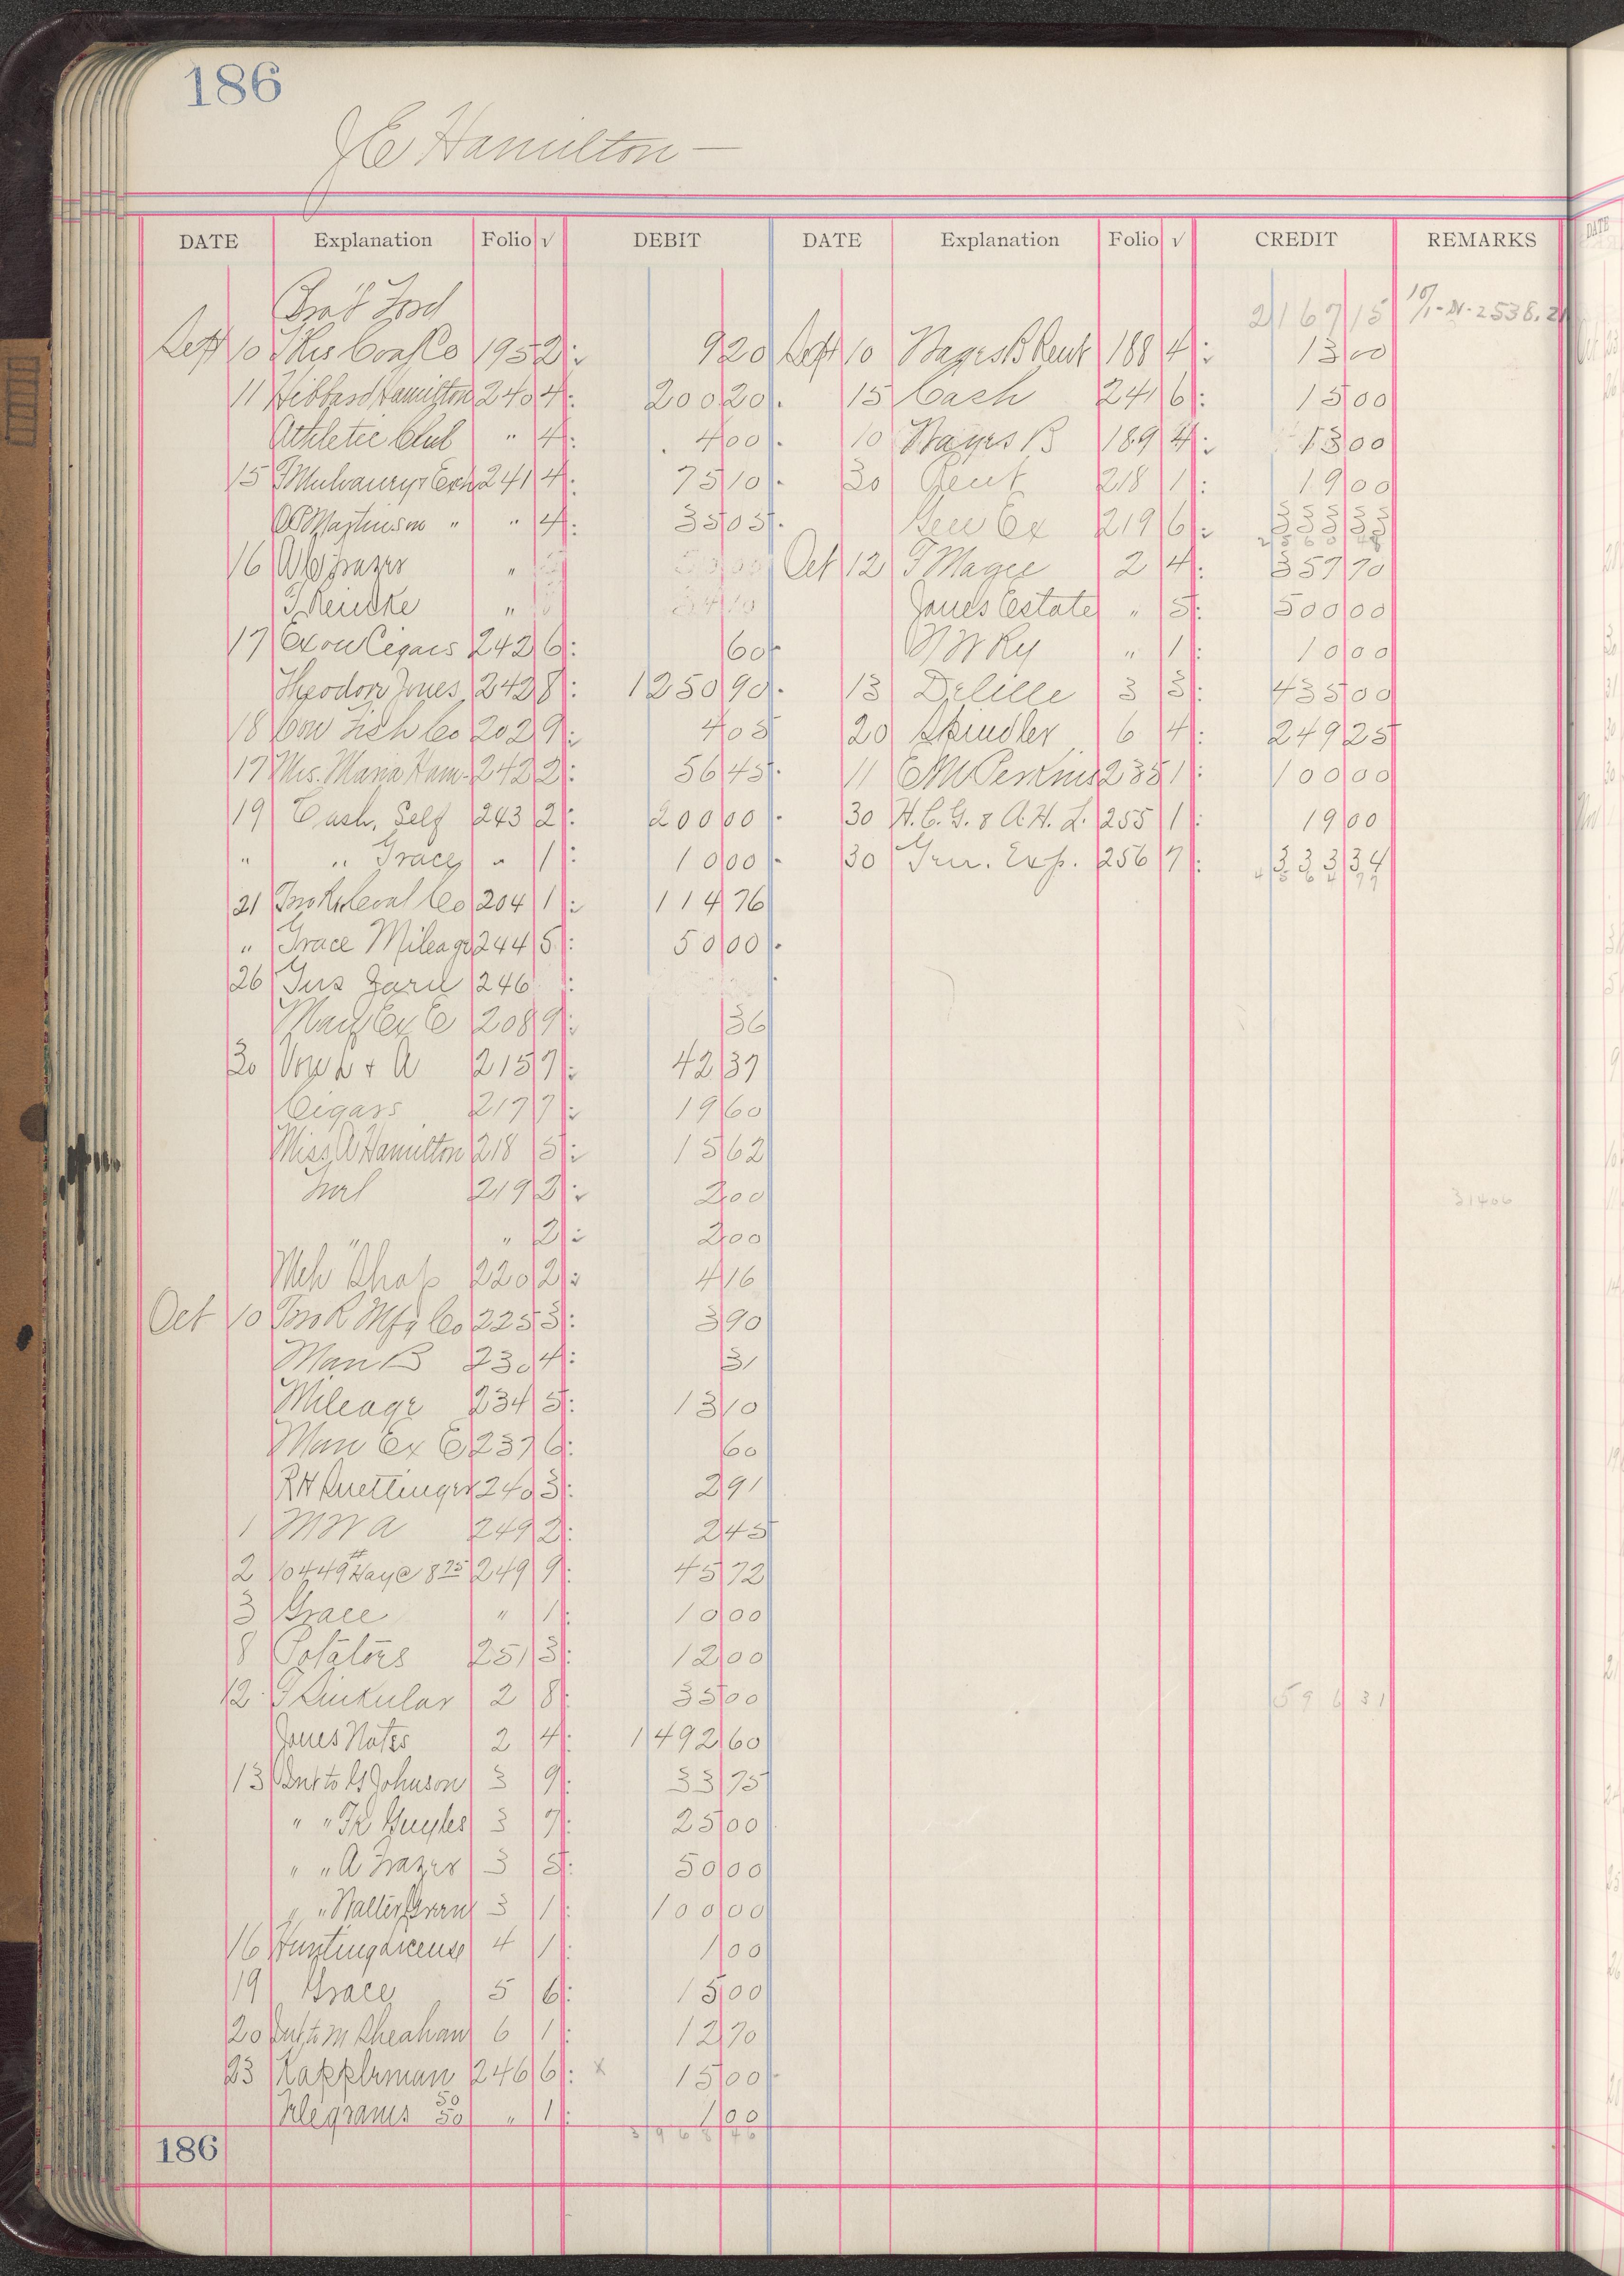 186
J E Hamilton —
DATE Explanation Folio √ DEBIT DATE Explanation Folio √ CREDIT REMARKS
Bra't Ford 2167 15 10/1 - Dr. 2538.21
Sept 10 Co 195 2 9 20 Sept 10 Wages B Rent 188 4 13 00
11 Hibbard Hamilton 240 4 200 20 15 Cash 241 6 15 00
Athletic Club " 4 4 00 10 Wages B 189 4 13 00
15 Exch 241 4 75 10 30 Rent 218 1 19 00
Martinson " " 4 35 05 Gen Ex 219 6 333 33
2560 48
16 Frazer " 50 00 Oct 12 T Magee 2 4 357 70
T Reincke " 34 10 Jones Estate " 5 500 00
17 Ex on Cigars 242 6 60 N W Ry " 1 10 00
Theodore Jones 242 8 1250 90 13 Delille 3 3 435 00
18 Fish Co 202 9 4 05 20 Spindler 6 4 249 25
17 Mrs. Maria Ham- 242 2 56 45 11 E M Perkins 235 1 100 00
19 Cash, Self 243 2 200 00 30 H. C. G. & A. H. L. 255 1 19 00
" " Grace " 1 10 00 30 Gen. Exp. 256 7 333 34
4564 77
21 Coal Co 204 1 114 76
" Grace Mileage 244 5 50 00
26 Gus 246
Man Ex E 208 9 36
30 L & A 215 7 42 37
Cigars 217 7 19 60
Miss A Hamilton 218 5 15 62
219 2 2 00
" " 2 2 00
Meh Shop 220 2 4 16
Oct 10 Two R Mfg Co 225 3 3 90
Man B 230 4 31
Mileage 234 5 13 10
Man Ex E 237 6 60
R H Suettinger 240 3 2 91
1 M W A 249 2 2 45
2 10449# Hay @ 8 75 249 9 45 72
3 Grace " 1 10 00
8 Potatoes 251 3 12 00
12 2 8 35 00
Jones Notes 2 4 1492 60
13 Int to G Johnson 3 9 33 75
" " Guyles 3 7 25 00
" " A Frazer 3 5 50 00
" " Walter Green 3 1 100 00
16 Hunting License 4 1 1 00
19 Grace 5 6 15 00
20 Int to M Sheahan 6 1 12 70
23 Kappleman 246 6 x 15 00
Telegrams 50 50 " 1 1 00
3968 46
31406
596 31
186